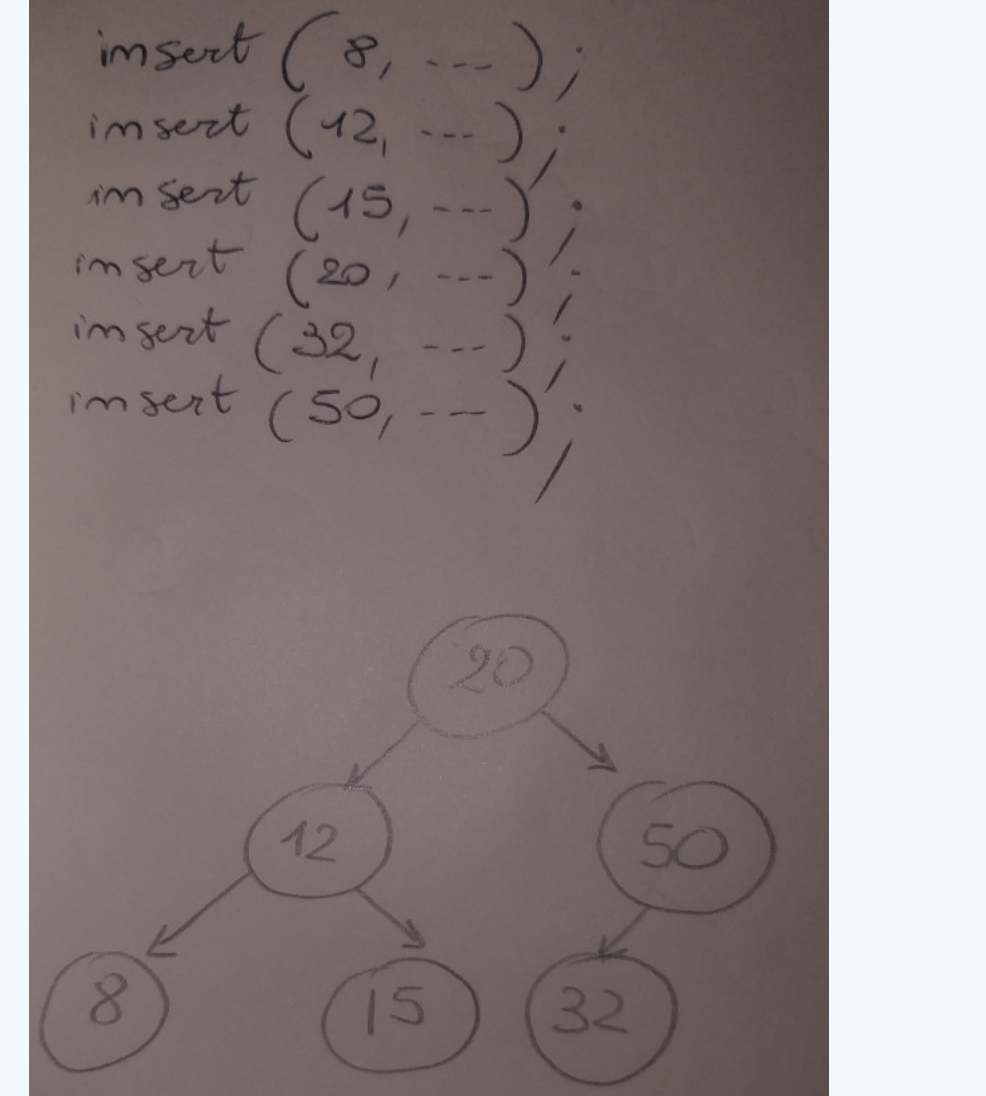 insert (8, ---);
insert (12, ---);
insert (15, ---);
insert (20, ---);
insert (32, ---);
insert (50, ---);
20
12 50
8 15 32